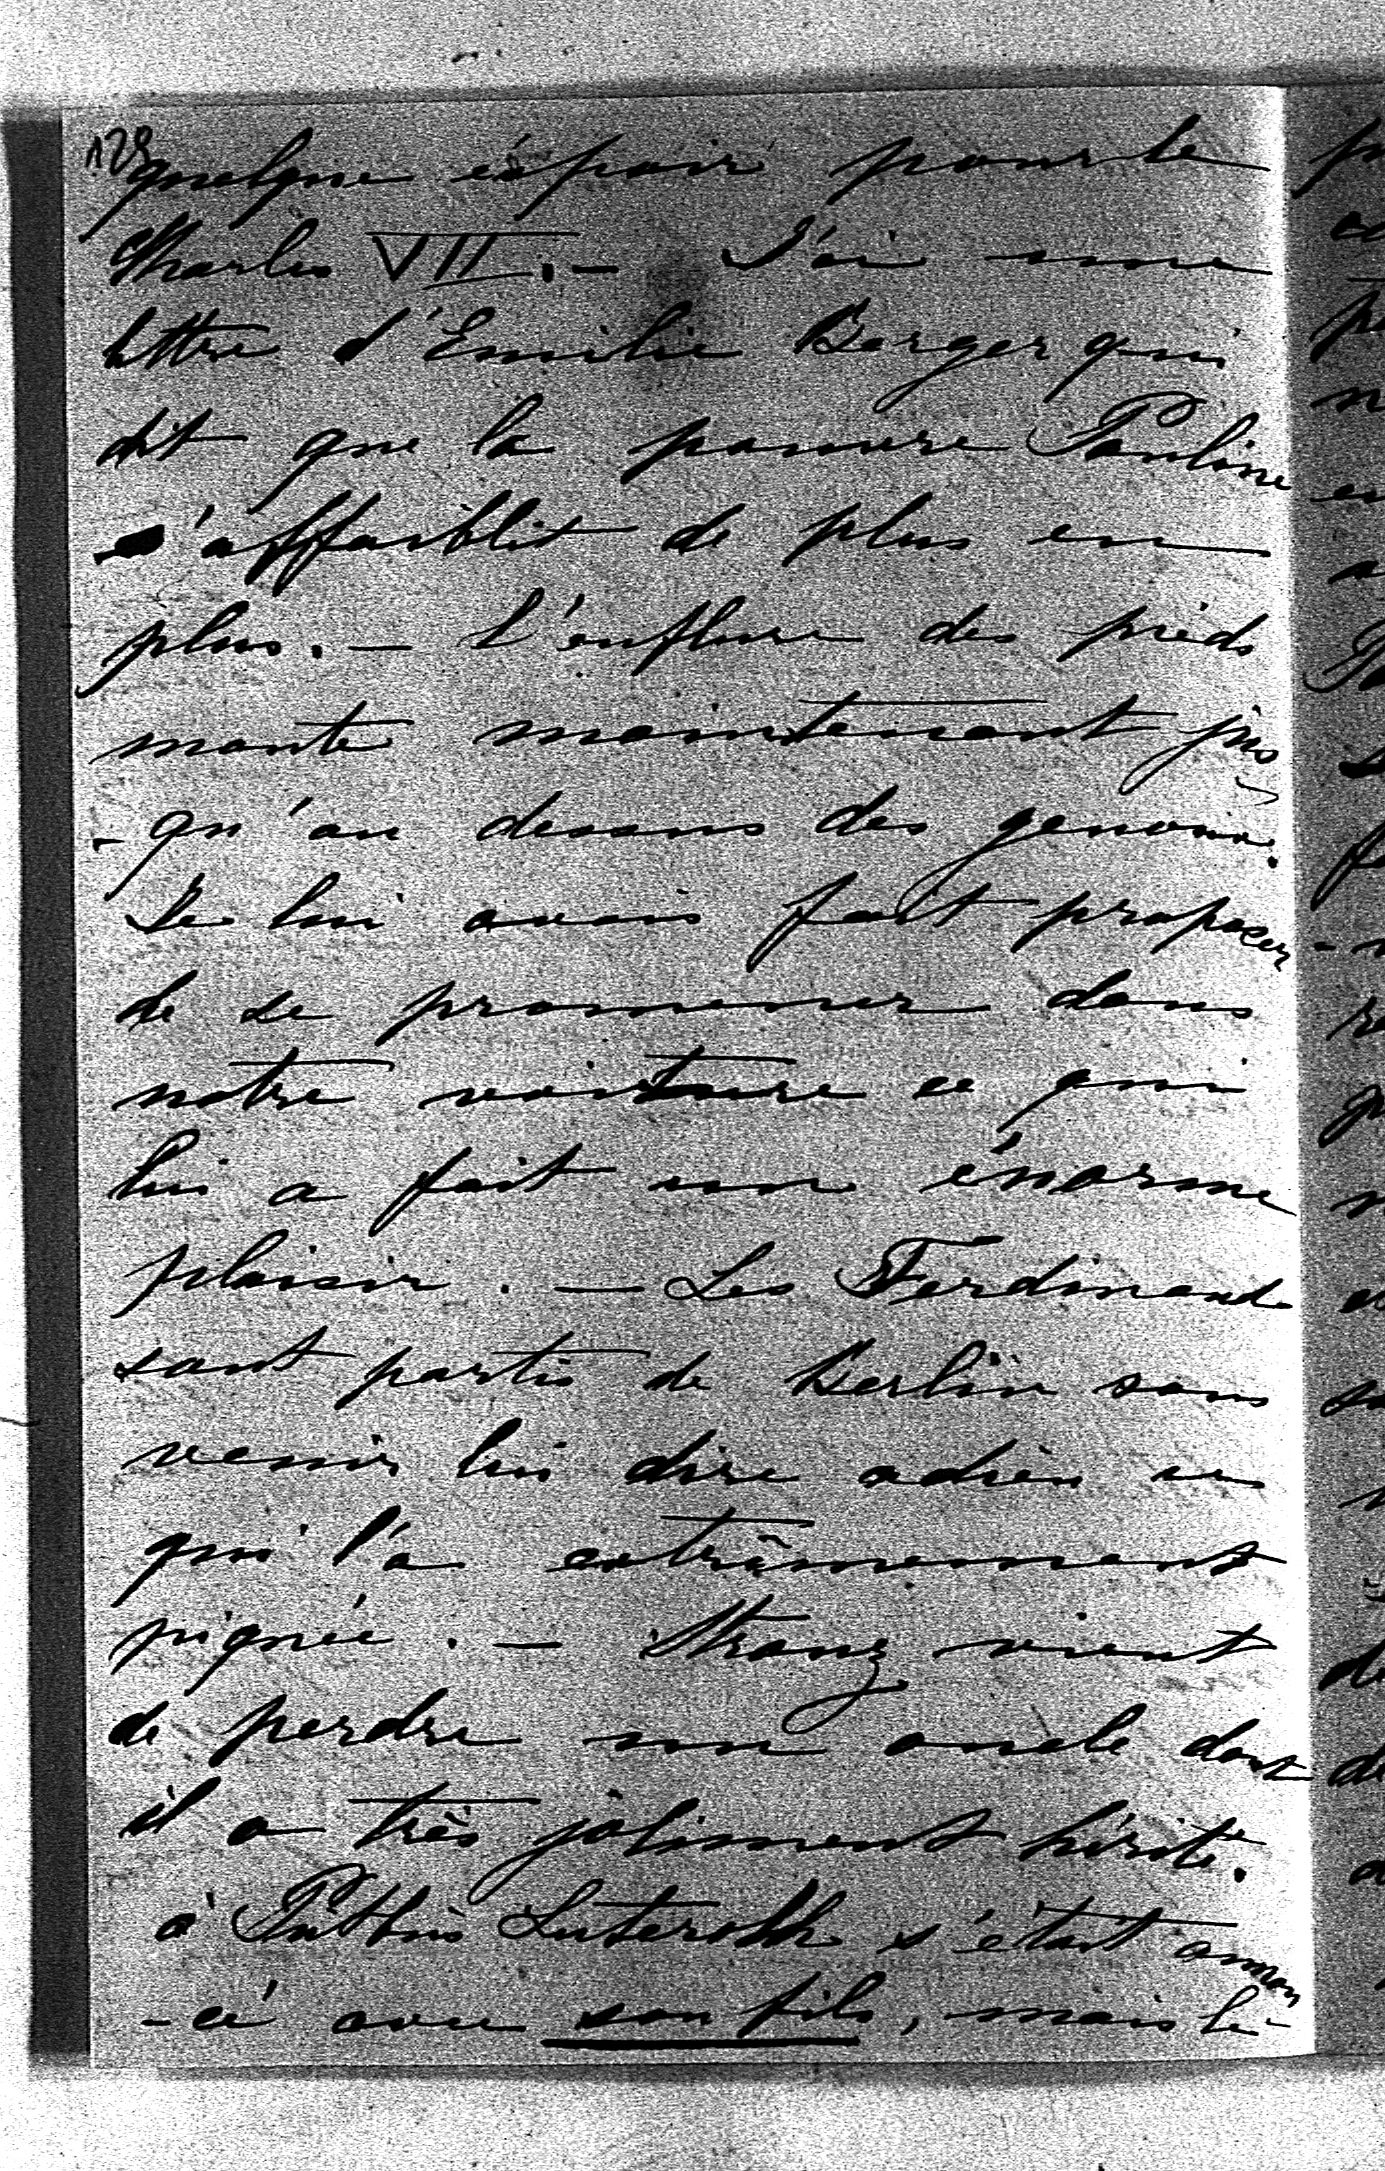 128
quelque éspoir pour le
Charles VII. — J'ai une
lettre d'Emilie Berger qui
dit que la pauvre Pauline
s'affaiblit de plus en
plus. — L'enflure des pieds
monte maintenant jus
- qu'au dessus des genoux.
Je lui avais fait proposer
de se promener dans
notre voiture ce qui
lui a fait un énorme
plaisir. — Les Ferdinands
sont partis de Berlin sans
venir lui dire adieu ce
qui l'a extrêmement
piquée. — Stranz vient
de perdre un oncle dont
il a très joliment hérité.
à Putbus Luteroth s'était annon
- cé avec son fils, mais le